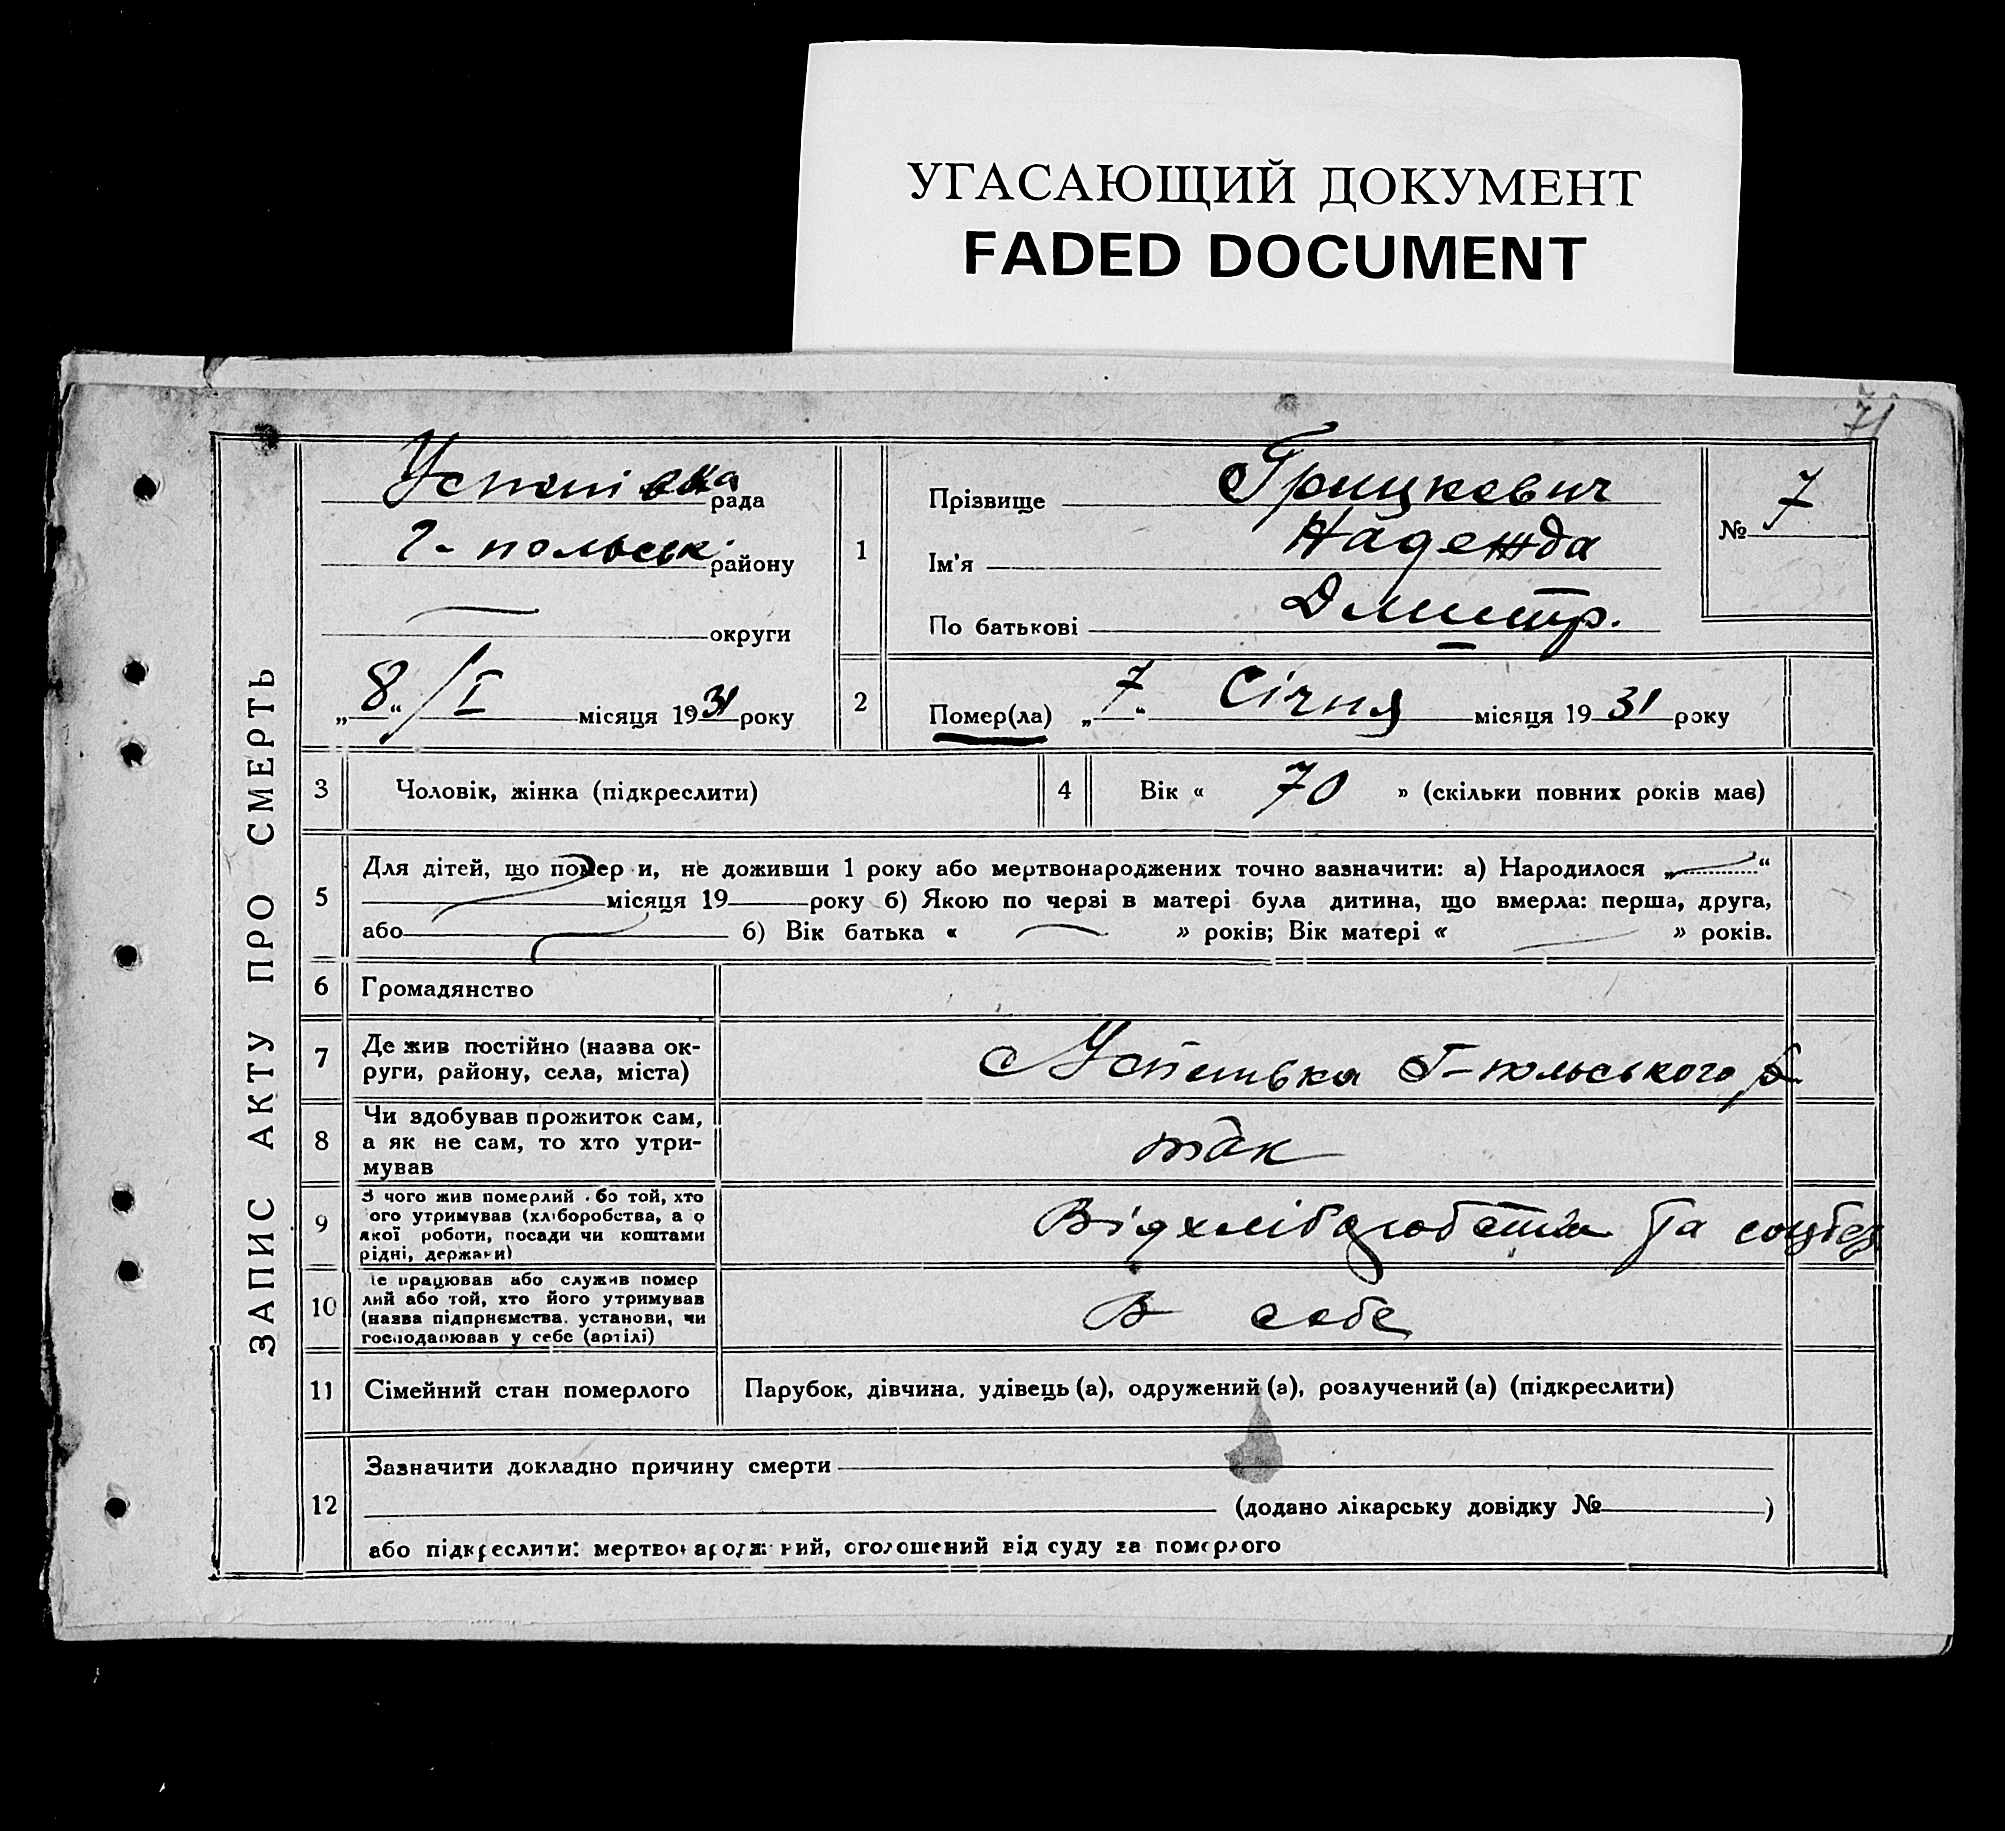 УГАСАЮЩИЙ ДОКУМЕНТ
FADED DOCUMENT
71
ЗАПИС АКТУ ПРО СМЕРТЬ
Успенівська рада
Г-польськ. району
округи
„8“ / I місяця 1931 року
1
Прізвище Грицкевич
Ім'я Надежда
По батькові Дмитр.
№ 7
2
Помер(ла) „7“ Січня місяця 1931 року
3 Чоловік, жінка (підкреслити)
4 Вік « 70 » (скільки повних років має)
5
Для дітей, що помер и, не доживши 1 року або мертвонароджених точно зазначити: а) Народилося „ “
місяця 19 року б) Якою по черзі в матері була дитина, що вмерла: перша, друга,
або б) Вік батька « » років; Вік матері « » років.
6 Громадянство
7 Де жив постійно (назва ок-
руги, району, села, міста)
с Успенівка Г-польського р.
8 Чи здобував прожиток сам,
а як не сам, то хто утри-
мував
так
9 З чого жив померлий бо той, хто
ого утримував (хліборобства, а о
якої роботи, посади чи коштами
рідні, держави)
Від хліборобства та
10 Де працював або служив помер
лий або той, хто його утримував
(назва підприємства, установи, чи
господарював у себе (артілі)
В себе
11 Сімейний стан померлого
Парубок, дівчина, удівець (а), одружений (а), розлучений (а) (підкреслити)
12
Зазначити докладно причину смерти
(додано лікарську довідку № )
або підкреслити: мертвонароджений, оголошений від суду за померлого